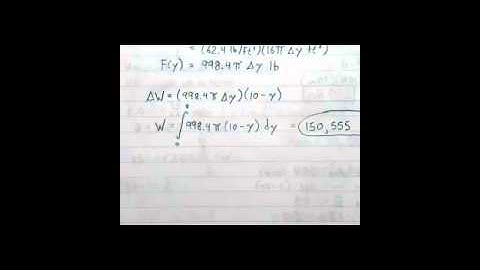 = (62.4 lb/ft³)(16π Δy ft³)
F(y) = 998.4π Δy lb
ΔW = (998.4π Δy)(10-y)
W = ∫₀⁸ 998.4π(10-y) dy = 150,555